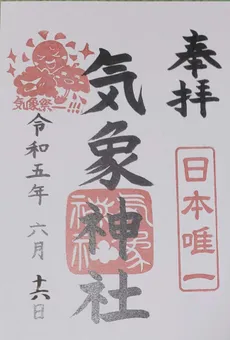 奉拝
日本唯一
気象神社
気象神社
気象祭!!!
令和五年 六月 十六日